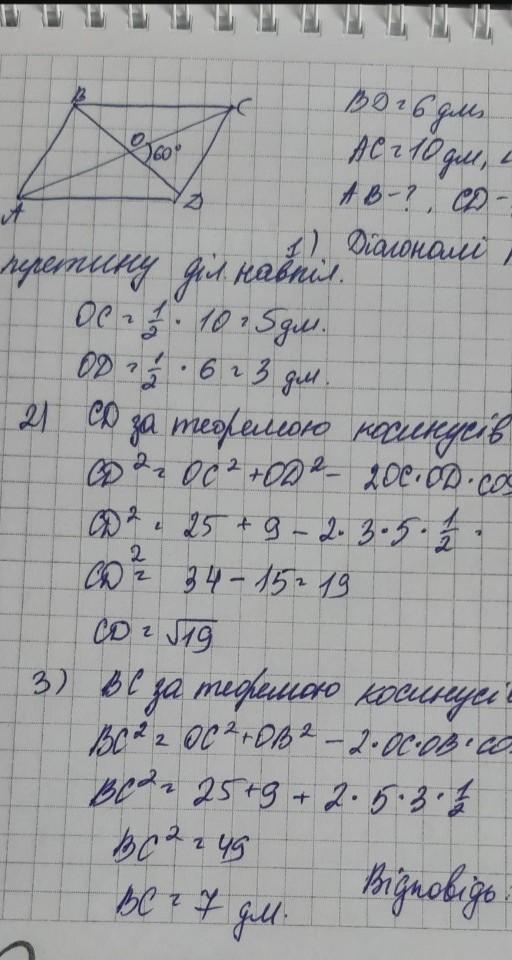 B
C
O
60°
A
D
BD = 6 дм,
AC = 10 дм,
AB - ?, CD -
1) Діагоналі
перетину діл. навпіл.
OC = 1/2 · 10 = 5 дм.
OD = 1/2 · 6 = 3 дм.
2) CD за теоремою косинусів
CD² = OC² + OD² - 2OC·OD·cos
CD² = 25 + 9 - 2·3·5·1/2 =
CD² = 34 - 15 = 19
CD = √19
3) BC за теоремою косинусів
BC² = OC² + OB² - 2·OC·OB·cos
BC² = 25 + 9 + 2·5·3·1/2
BC² = 49
BC = 7 дм.
Відповідь: